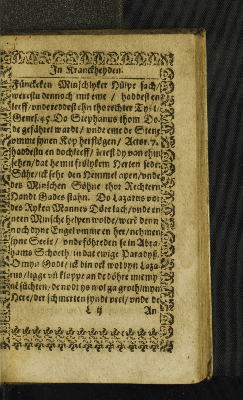 In Kranckheyden.
Füncketen Minschlyker Hülpe sach/
werestu dennoch mit eme / haddest en
leeff / vnde reddest ehn tho rechter Tydt/
Genes. 45. Do Stephanus thom Do-
de geföhret wardt / vnde eme de Stene
vmme synen Kop herflögen / Actor. 7.
haddestu en doch leeff / lerest dy van ehm
sehen / dat he mit frölykem Herten sede:
Sühe / ick sehe den Hemmel apen / vnde
des Minschen Söhne thor Rechtern
Handt Gades stahn. Do Lazarus vor
des Ryken Mannes Döre lach / vnde en
neen Minsche helpen wolde / weren denn
noch dyne Engel vmme en her / nehmen
syne Seele / vnde föhreden se in Abra-
hams Schoth / in dat ewige Paradyß.
O myn Godt / ick bin ock wol dyn Laza-
rus / ligge vñ kloppe an de döhre mit my-
süchten / de nodt ys wol ga groth / myn
Here / der schmerten syndt veel / vnde de
L ij An